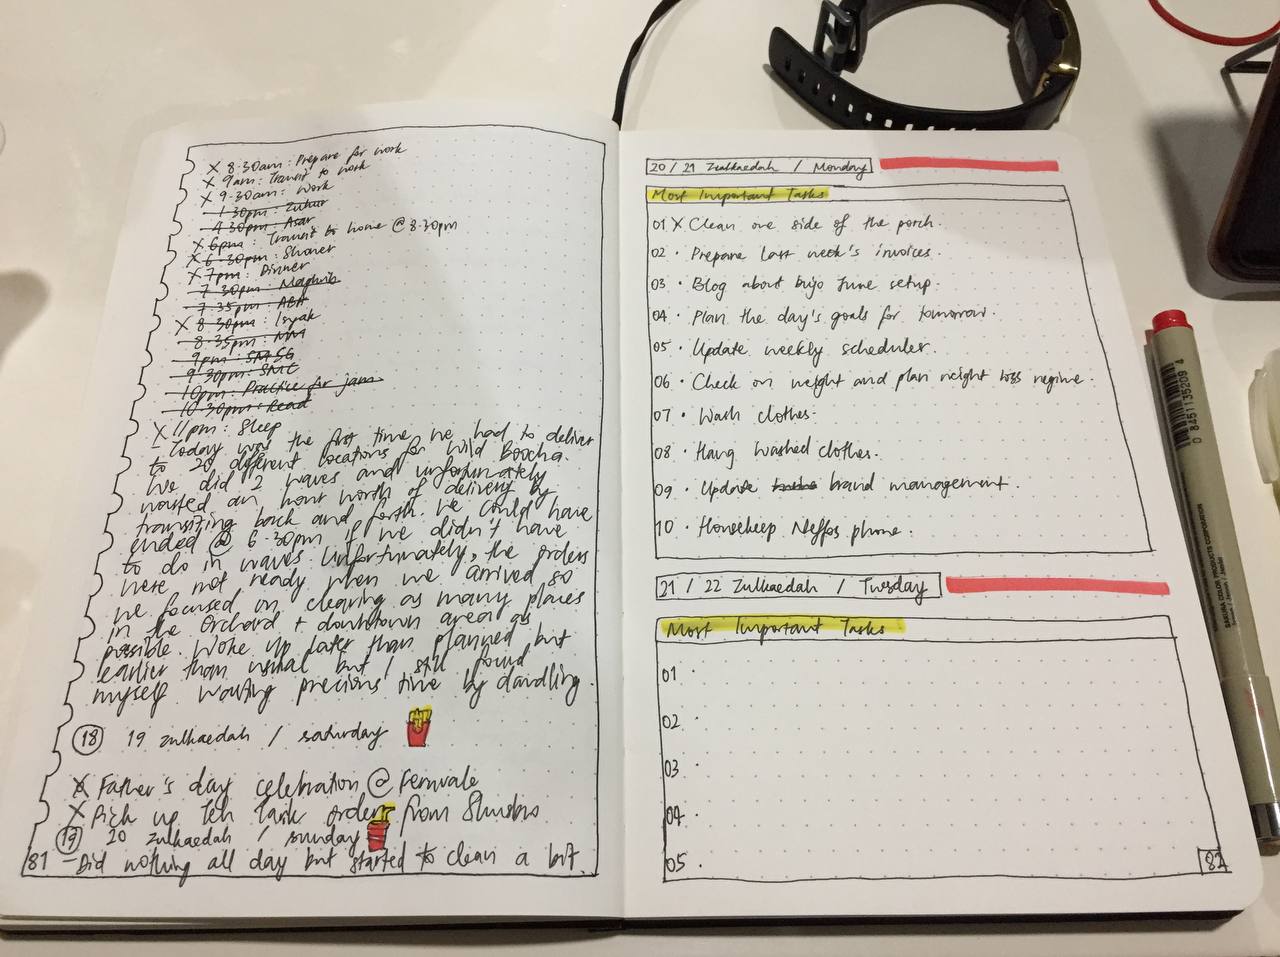 X 8.30am: Prepare for work
X 9am: Transit to work
X 9.30am: Work
1.30pm: Zuhur
4.30pm: Asar
X 6pm: Transit to home @ 8.30pm
X 6.30pm: Shower
X 7pm: Dinner
7.30pm: Maghrib
7.35pm: ABA
X 8.30pm: Isyak
8.35pm: NM
9pm: SMSG
9.30pm: SMC
10pm: Practice for jam
10.30pm: Read
X 11pm: Sleep
- Today was the first time we had to deliver
to 20 different locations for Wild Boocha.
We did 2 waves and unfortunately
wasted an hour worth of delivery by
transiting back and forth. We could have
ended @ 6.30pm if we didn't have
to do in waves. Unfortunately, the orders
were not ready when we arrived so
we focused on clearing as many places
in the Orchard + downtown area as
possible. Woke up later than planned but
earlier than usual but I still found
myself wasting precious time by dawdling.
18 19 Zulkaedah / Saturday
X Father's day celebration @ Fernvale
X Pick up Teh Tarik order from
19 20 Zulkaedah / Sunday
- Did nothing all day but started to clean a bit.
81
20 / 21 Zulkaedah / Monday
Most Important Tasks
01 X Clean one side of the porch.
02 · Prepare last week's invoices.
03 · Blog about bujo June setup.
04 · Plan the day's goals for tomorrow.
05 · Update weekly scheduler.
06 · Check on weight and plan weight loss regime.
07 · Wash clothes.
08 · Hang washed clothes.
09 · Update brand management.
10 · Housekeep Neffos phone.
21 / 22 Zulkaedah / Tuesday
Most Important Tasks
01 ·
02 ·
03 ·
04 ·
05 ·
82
0 84511 35209 4
SAKURA COLOR PRODUCTS CORPORATION